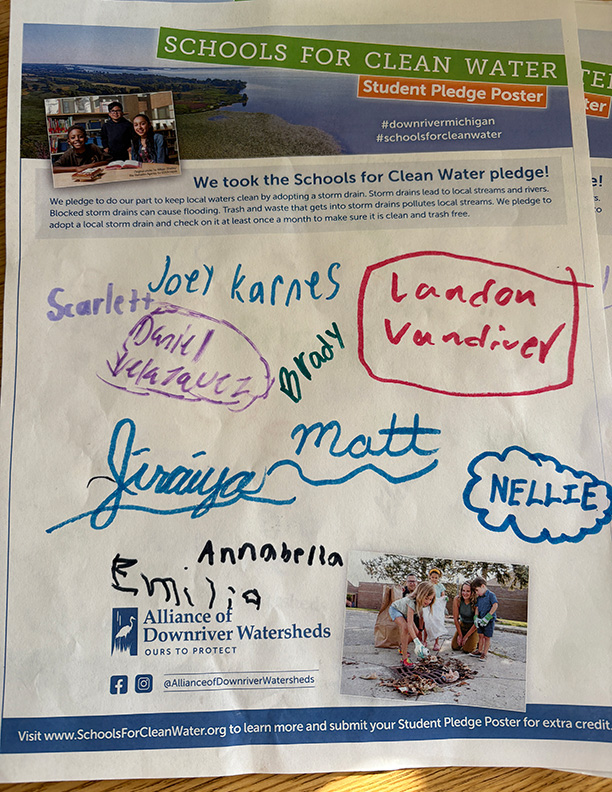 SCHOOLS FOR CLEAN WATER
Student Pledge Poster
#downrivermichigan
#schoolsforcleanwater
We took the Schools for Clean Water pledge!
We pledge to do our part to keep local waters clean by adopting a storm drain. Storm drains lead to local streams and rivers.
Blocked storm drains can cause flooding. Trash and waste that gets into storm drains pollutes local streams. We pledge to
adopt a local storm drain and check on it at least once a month to make sure it is clean and trash free.
Scarlett
Joey Karnes
Landon
Vandiver
Daniel
Velazquez
Brady
Matt
Jiraiya
NELLIE
Annabella
Emilia
Alliance of
Downriver Watersheds
OURS TO PROTECT
@AllianceofDownriverWatersheds
Visit www.SchoolsForCleanWater.org to learn more and submit your Student Pledge Poster for extra credit.